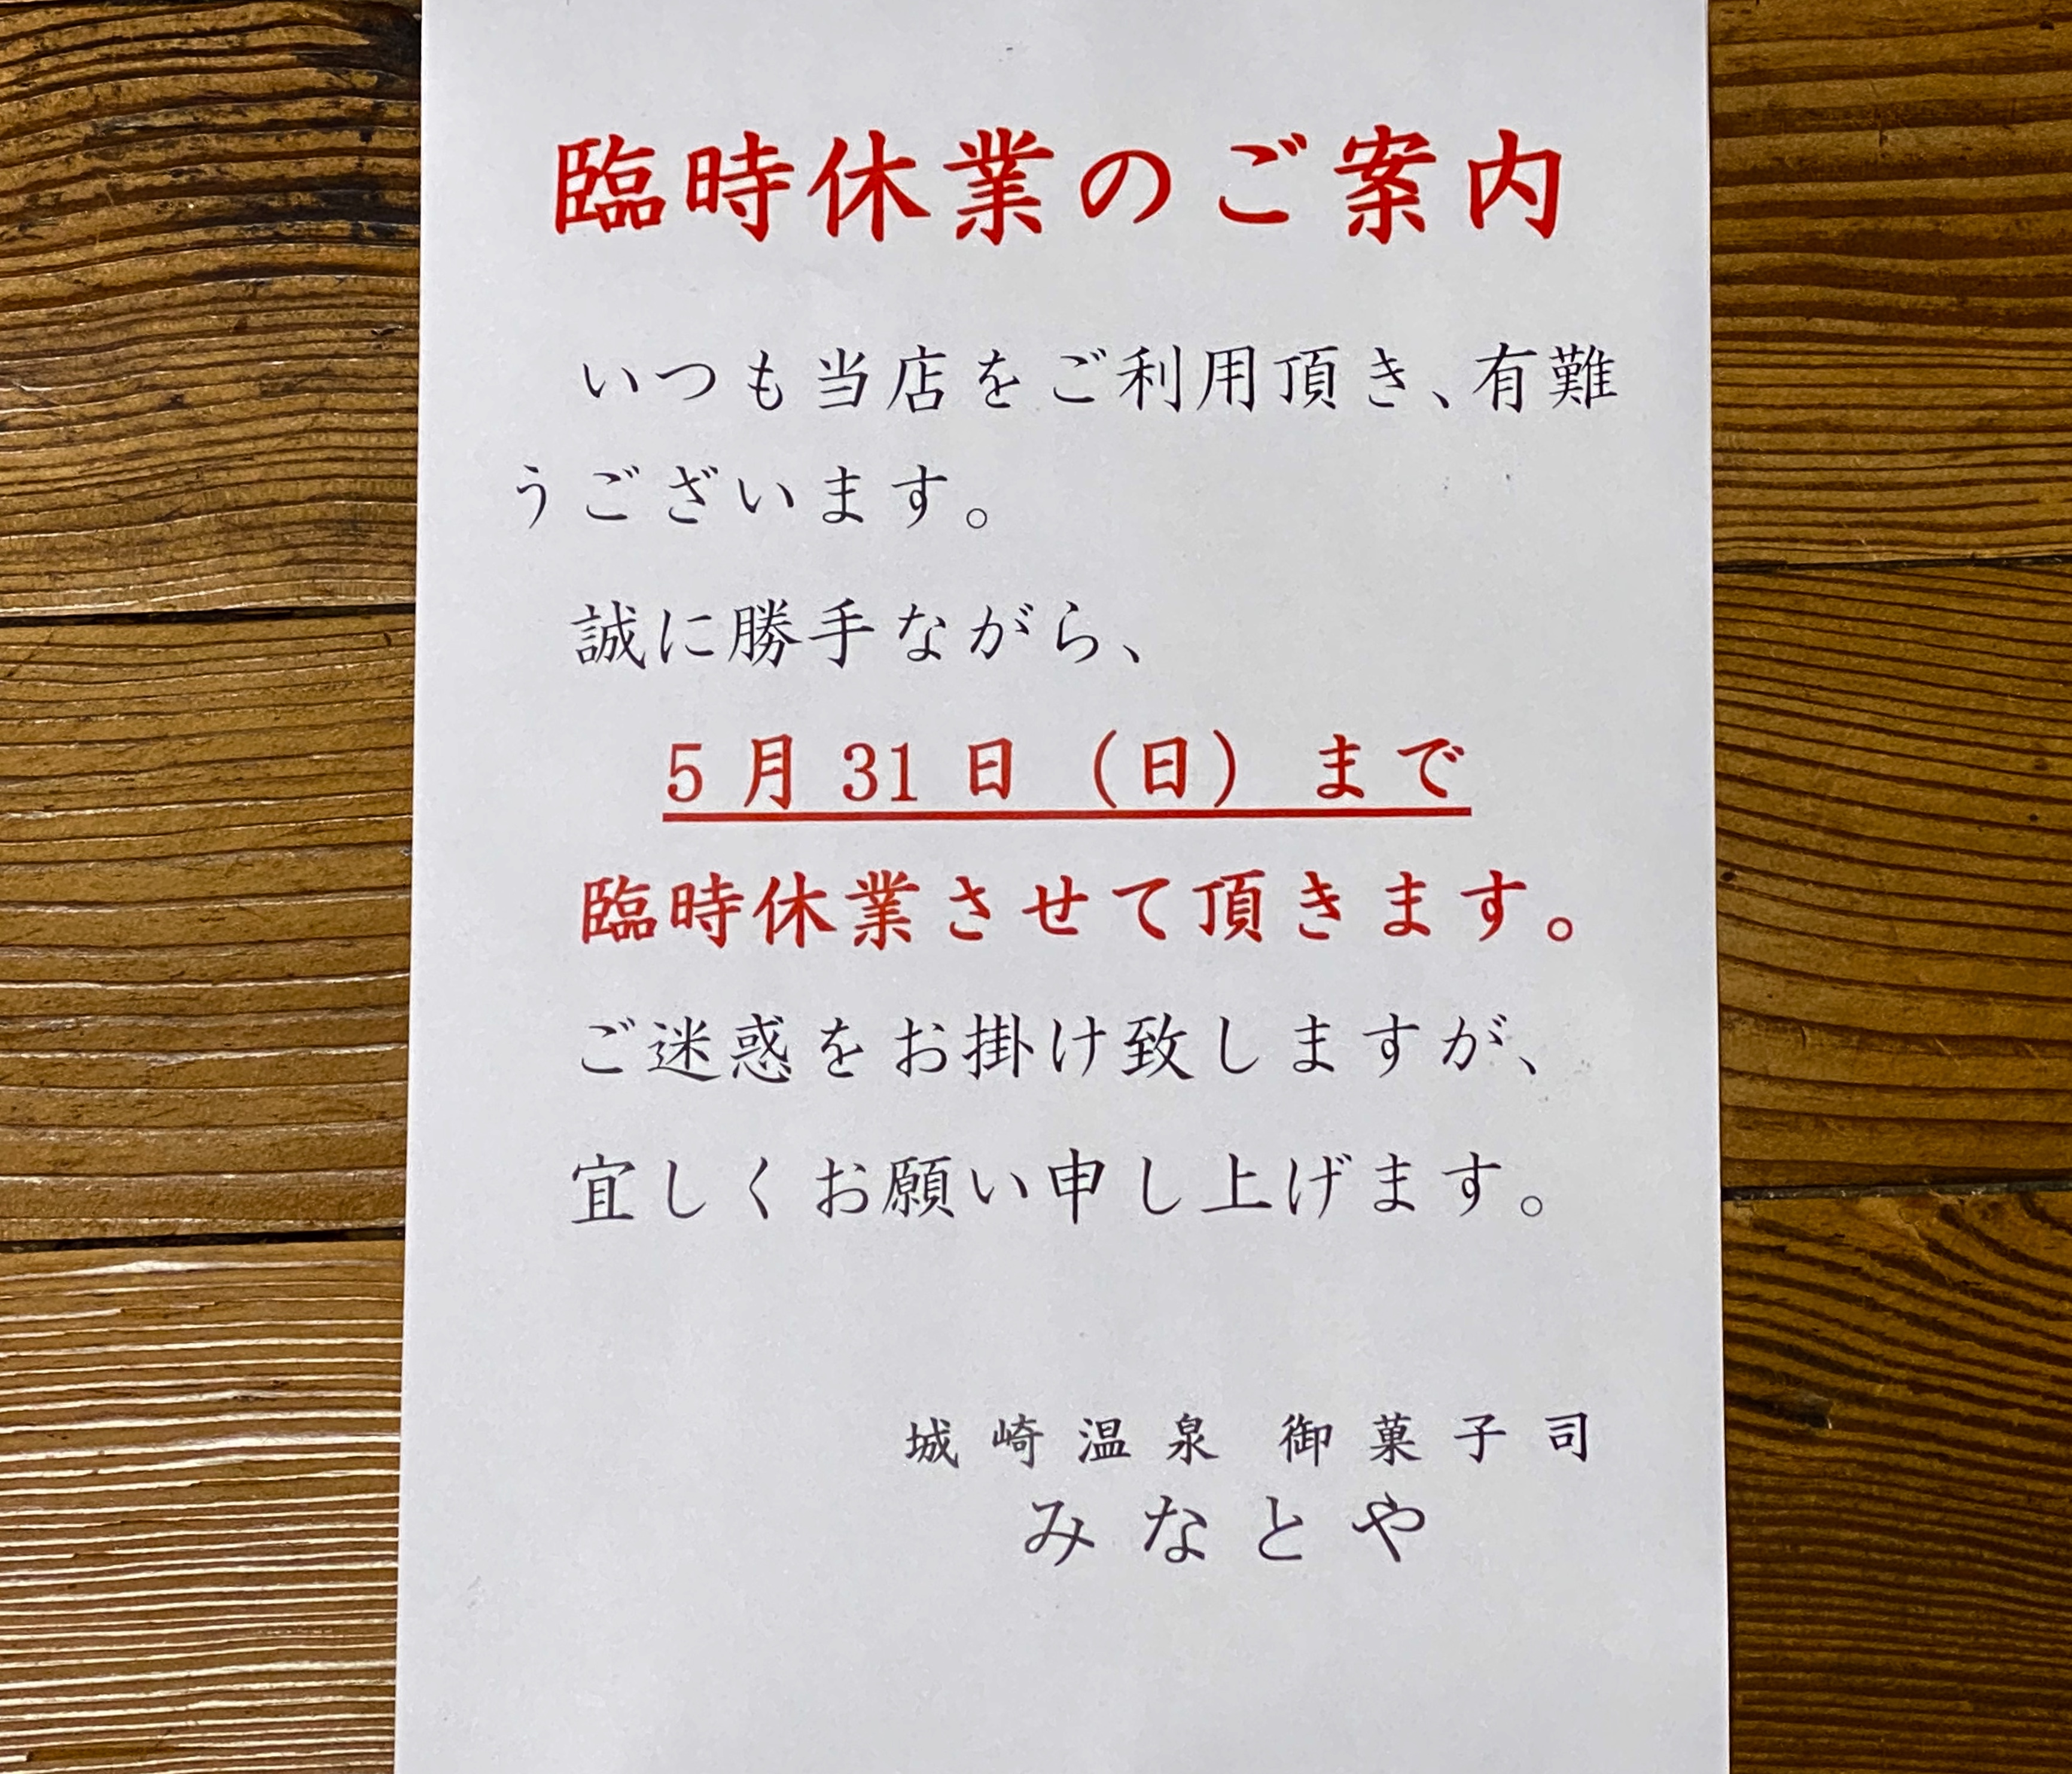 臨時休業のご案内
いつも当店をご利用頂き、有難
うございます。
誠に勝手ながら、
5月31日（日）まで
臨時休業させて頂きます。
ご迷惑をお掛け致しますが、
宜しくお願い申し上げます。
城崎温泉 御菓子司
みなとや